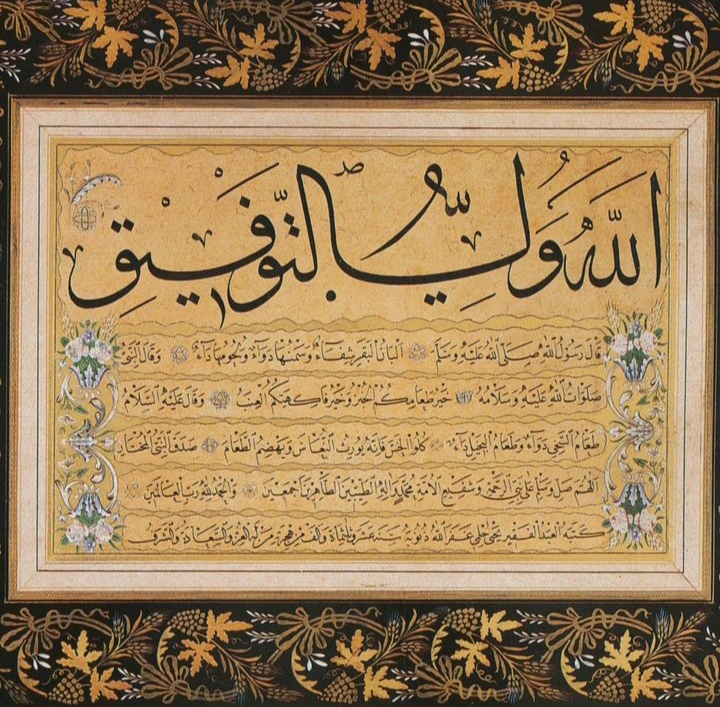 اللّٰه وليّ التّوفيق
قال رسول اللّٰه صلّى اللّٰه عليه وسلّم البان البقر شفاء وسمنها دواء ولحومها داء وقال النبي
صلوات اللّٰه عليه وسلامه خير طعامكم الخبز وخير فاكهتكم العنب وقال عليه السلام
طعام السخي دواء وطعام البخيل داء كلوا الجبن فانه يورث النعاس ويهضم الطعام صدق النبي المختار
اللهم صل وسلم على نبي الرحمة وشفيع الامة محمد واله الطيبين الطاهرين اجمعين والحمد للّٰه رب العالمين
كتبه العبد الفقير يحيى حلمي غفر اللّٰه ذنوبه سنة عشر وثلثماة والف من هجرة من له العز والسعادة والشرف